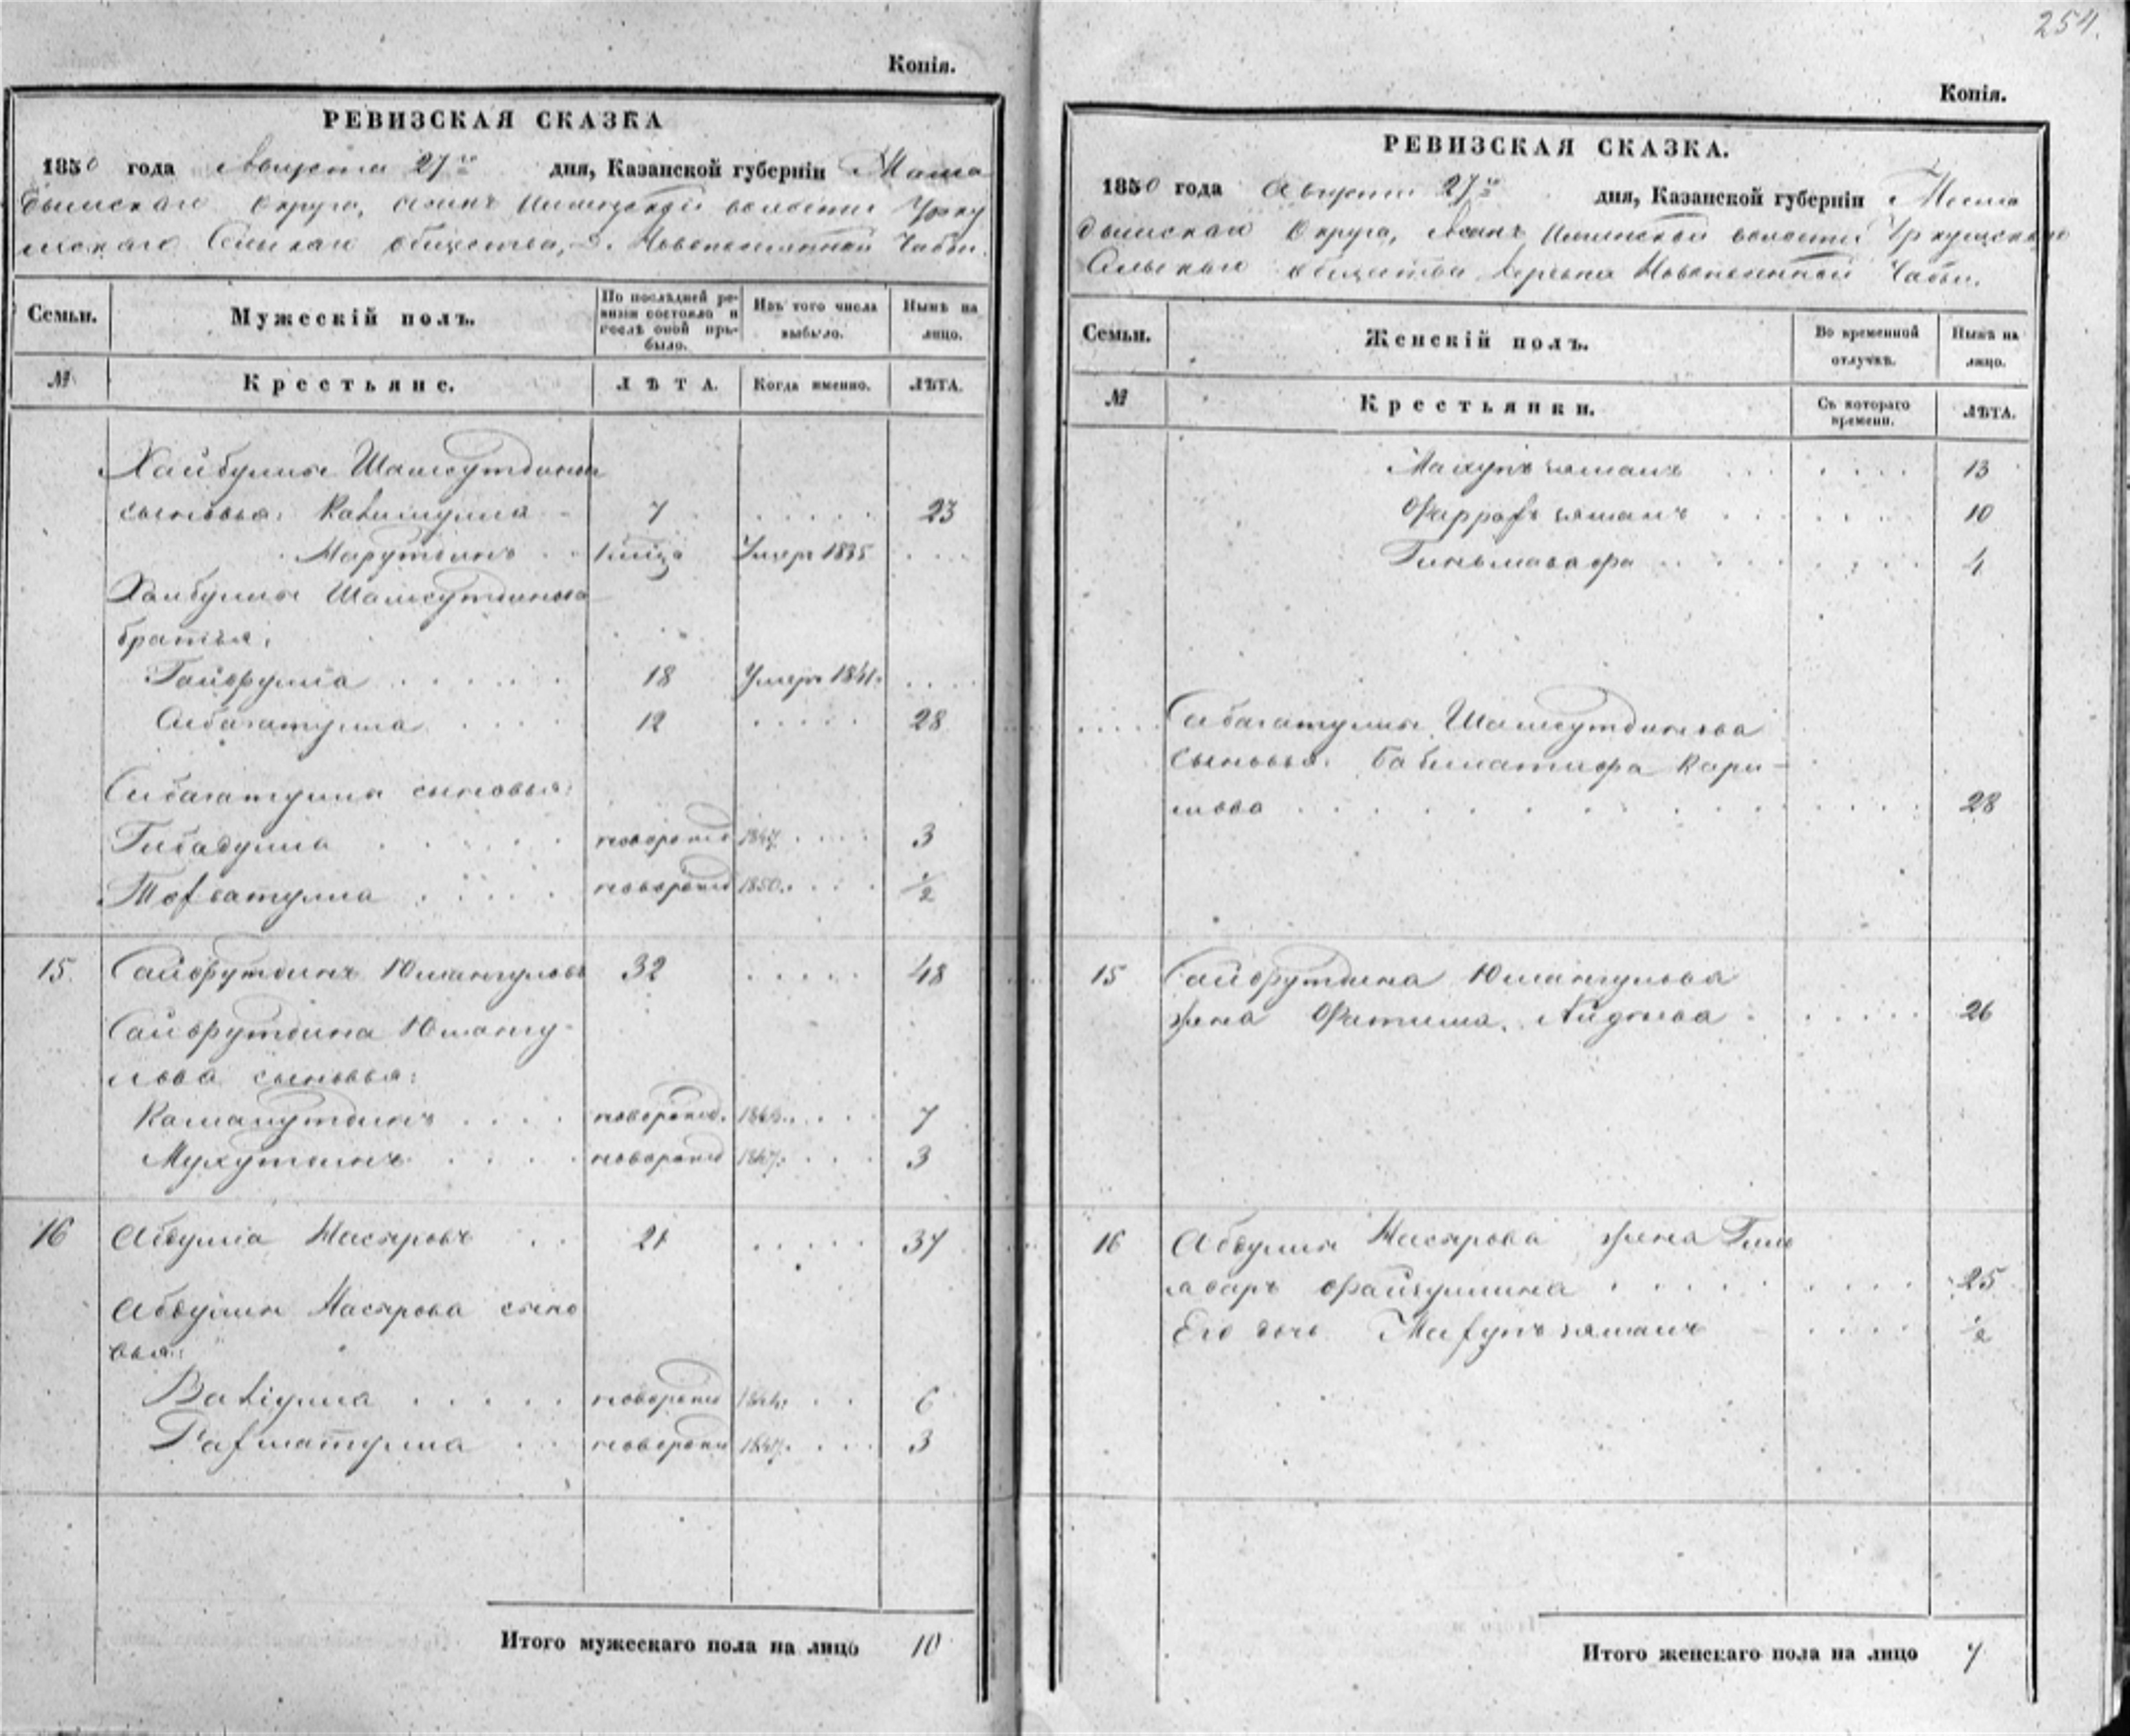 Копія.
РЕВИЗСКАЯ СКАЗКА
1850 года Августа 27го дня, Казанской губерніи Мама
дышскаго Округа, волости Урку
шскаго Сельскаго общества, д. Новопоселенной Чабьи.
Семьи. Мужескій полъ. По послѣдней ре-визіи состояло и послѣ оной при-было. Изъ того числа выбыло. Нынѣ на лицо.
№ Крестьяне. ЛѢТА. Когда именно. ЛѢТА.
Хайбуллы Шамсутдинова
сыновья: 7 ..... 23
Умеръ 1835 ...
Хайбуллы Шамсутдинова
братья:
Гайфулла ..... 18 Умеръ 1841. ....
Сибагатулла .... 12 ..... 28
Сибагатуллы сыновья:
Гибадулла ..... новорожд 1847. .... 3
Тохватулла ..... новорожд 1850. .... 1/2
15. Сайфутдинъ Юмангуловъ 32 ..... 48
Сайфутдина Юмангу-
лова сыновья:
Камалутдинъ .... новорожд. 1843. .... 7
Мухутдинъ .... новорожд 1847. ... 3
16 Абдулла Насыровъ .. 21 ..... 37
Абдуллы Насырова сыно
вья:
Вагидулла ..... новорожд 1844. .. 6
Рахматулла ... новорожд 1847. ... 3
Итого мужескаго пола на лицо 10
254.
Копія.
РЕВИЗСКАЯ СКАЗКА.
1850 года Августа 27го дня, Казанской губерніи Мама
дышскаго Округа, волости Уркушскаго
Сельскаго общества деревни Новопоселенной Чабьи.
Семьи. Женскій полъ. Во временной отлучкѣ. Нынѣ на лицо.
№ Крестьянки. Съ котораго времени. ЛѢТА.
13
10
4
Сибагатуллы Шамсутдинова
Кари-
мова ..... 28
15 Сайфутдина Юмангулова
жена Фатима ..... 26
16 Абдуллы Насырова жена
Файзуллина ..... 25
Его дочь .... 1/2
Итого женскаго пола на лицо 7